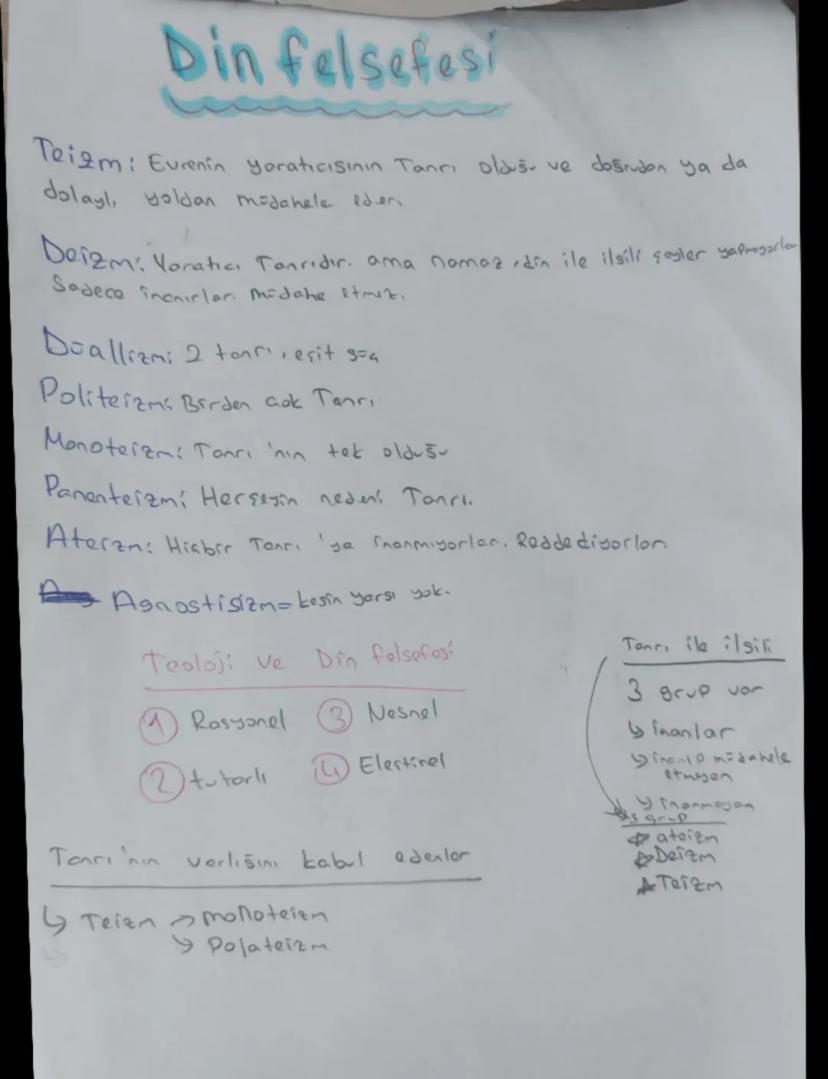 Din felsefesi
Teizm: Evrenin yaratıcısının Tanrı olduğu ve doğrudan ya da
dolaylı yoldan müdahele eder.
Deizm: Yaratıcı Tanrıdır. ama namaz, din ile ilgili şeyler yapmıyorlar
Sadece inanırlar. müdahe etmez.
Düallizm: 2 tanrı, eşit güç
Politeizm: Birden çok Tanrı
Monoteizm: Tanrı'nın tek olduğu
Panenteizm: Herşeyin nedeni Tanrı.
Ateizm: Hiçbir Tanrı'ya inanmıyorlar. Reddediyorlar.
Agnostisizm= kesin yargı yok.
Teoloji ve Din felsefesi
1 Rasyonel 3 Nesnel
2 tutarlı 4 Eleştirel
Tanrı'nın varlığını kabul edenler
↳ Teizm → monoteizm
↘ Polateizm
Tanrı ile ilgili
3 grup var
↳ inanlar
↳ inanıp müdahele
etmeyen
↳ inanmayan
3 grup
ateizm
Deizm
Teizm